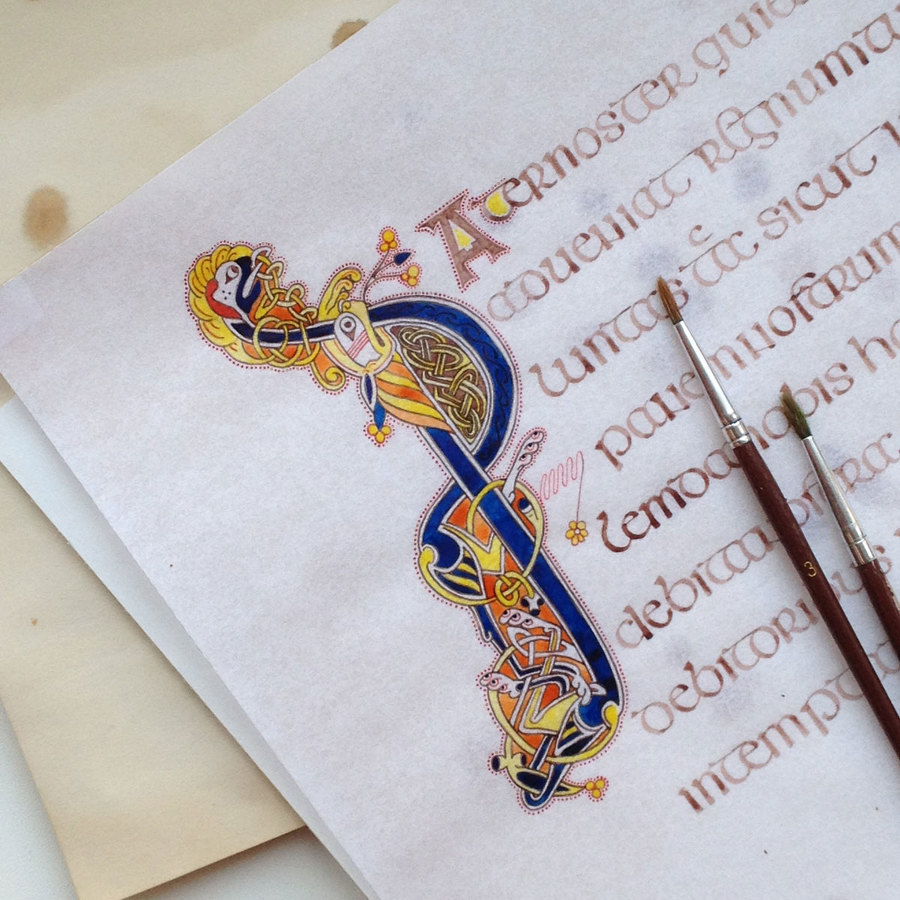 PATERNOSTER QUI
adueniat regnum
luntas sicut
panem nostrum
lem da nobis
debita nostra
debitoribus
intempta
3